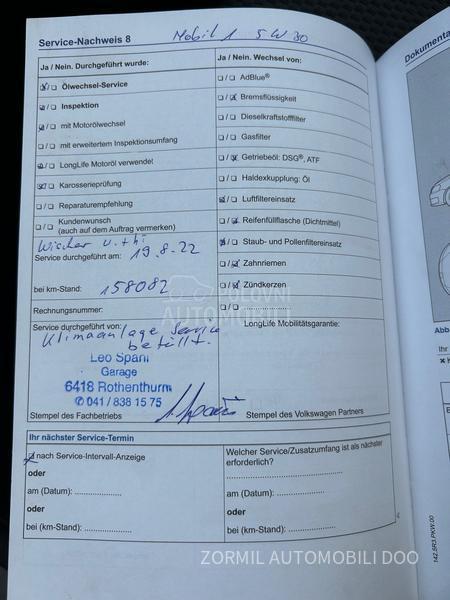 Service-Nachweis 8
Mobil 1 5W30
Ja / Nein. Durchgeführt wurde:
☒/☐ Ölwechsel-Service
☒/☐ Inspektion
☒/☐ mit Motorölwechsel
☐/☐ mit erweitertem Inspektionsumfang
☒/☐ LongLife Motoröl verwendet
☒/☐ Karosserieprüfung
☐/☐ Reparaturempfehlung
☐/☐ Kundenwunsch
(auch auf dem Auftrag vermerken)
Wischer v. + hi
Service durchgeführt am: 19.8.22
bei km-Stand: 158082
Rechnungsnummer:
Service durchgeführt von:
Klimaanlage Service
befüllt.
Leo Spani
Garage
6418 Rothenthurm
✆ 041 / 838 15 75
Stempel des Fachbetriebs
Ja / Nein. Wechsel von:
☐/☐ AdBlue®
☐/☒ Bremsflüssigkeit
☐/☐ Dieselkraftstofffilter
☐/☐ Gasfilter
☐/☒ Getriebeöl: DSG®, ATF
☐/☐ Haldexkupplung: Öl
☒/☐ Luftfiltereinsatz
☐/☒ Reifenfüllflasche (Dichtmittel)
☒/☐ Staub- und Pollenfiltereinsatz
☐/☒ Zahnriemen
☐/☒ Zündkerzen
☐/☐ ....................
LongLife Mobilitätsgarantie:
Stempel des Volkswagen Partners
POLOVNI
AUTOMOBILI
Ihr nächster Service-Termin
☒ nach Service-Intervall-Anzeige
oder
am (Datum): ....................
oder
bei (km-Stand): ....................
Welcher Service/Zusatzumfang ist als nächster
erforderlich?
....................
am (Datum): ....................
oder
bei (km-Stand): ....................
Dokumenta
Abb
Ihr
142.5R3.PKW.00
ZORMIL AUTOMOBILI DOO